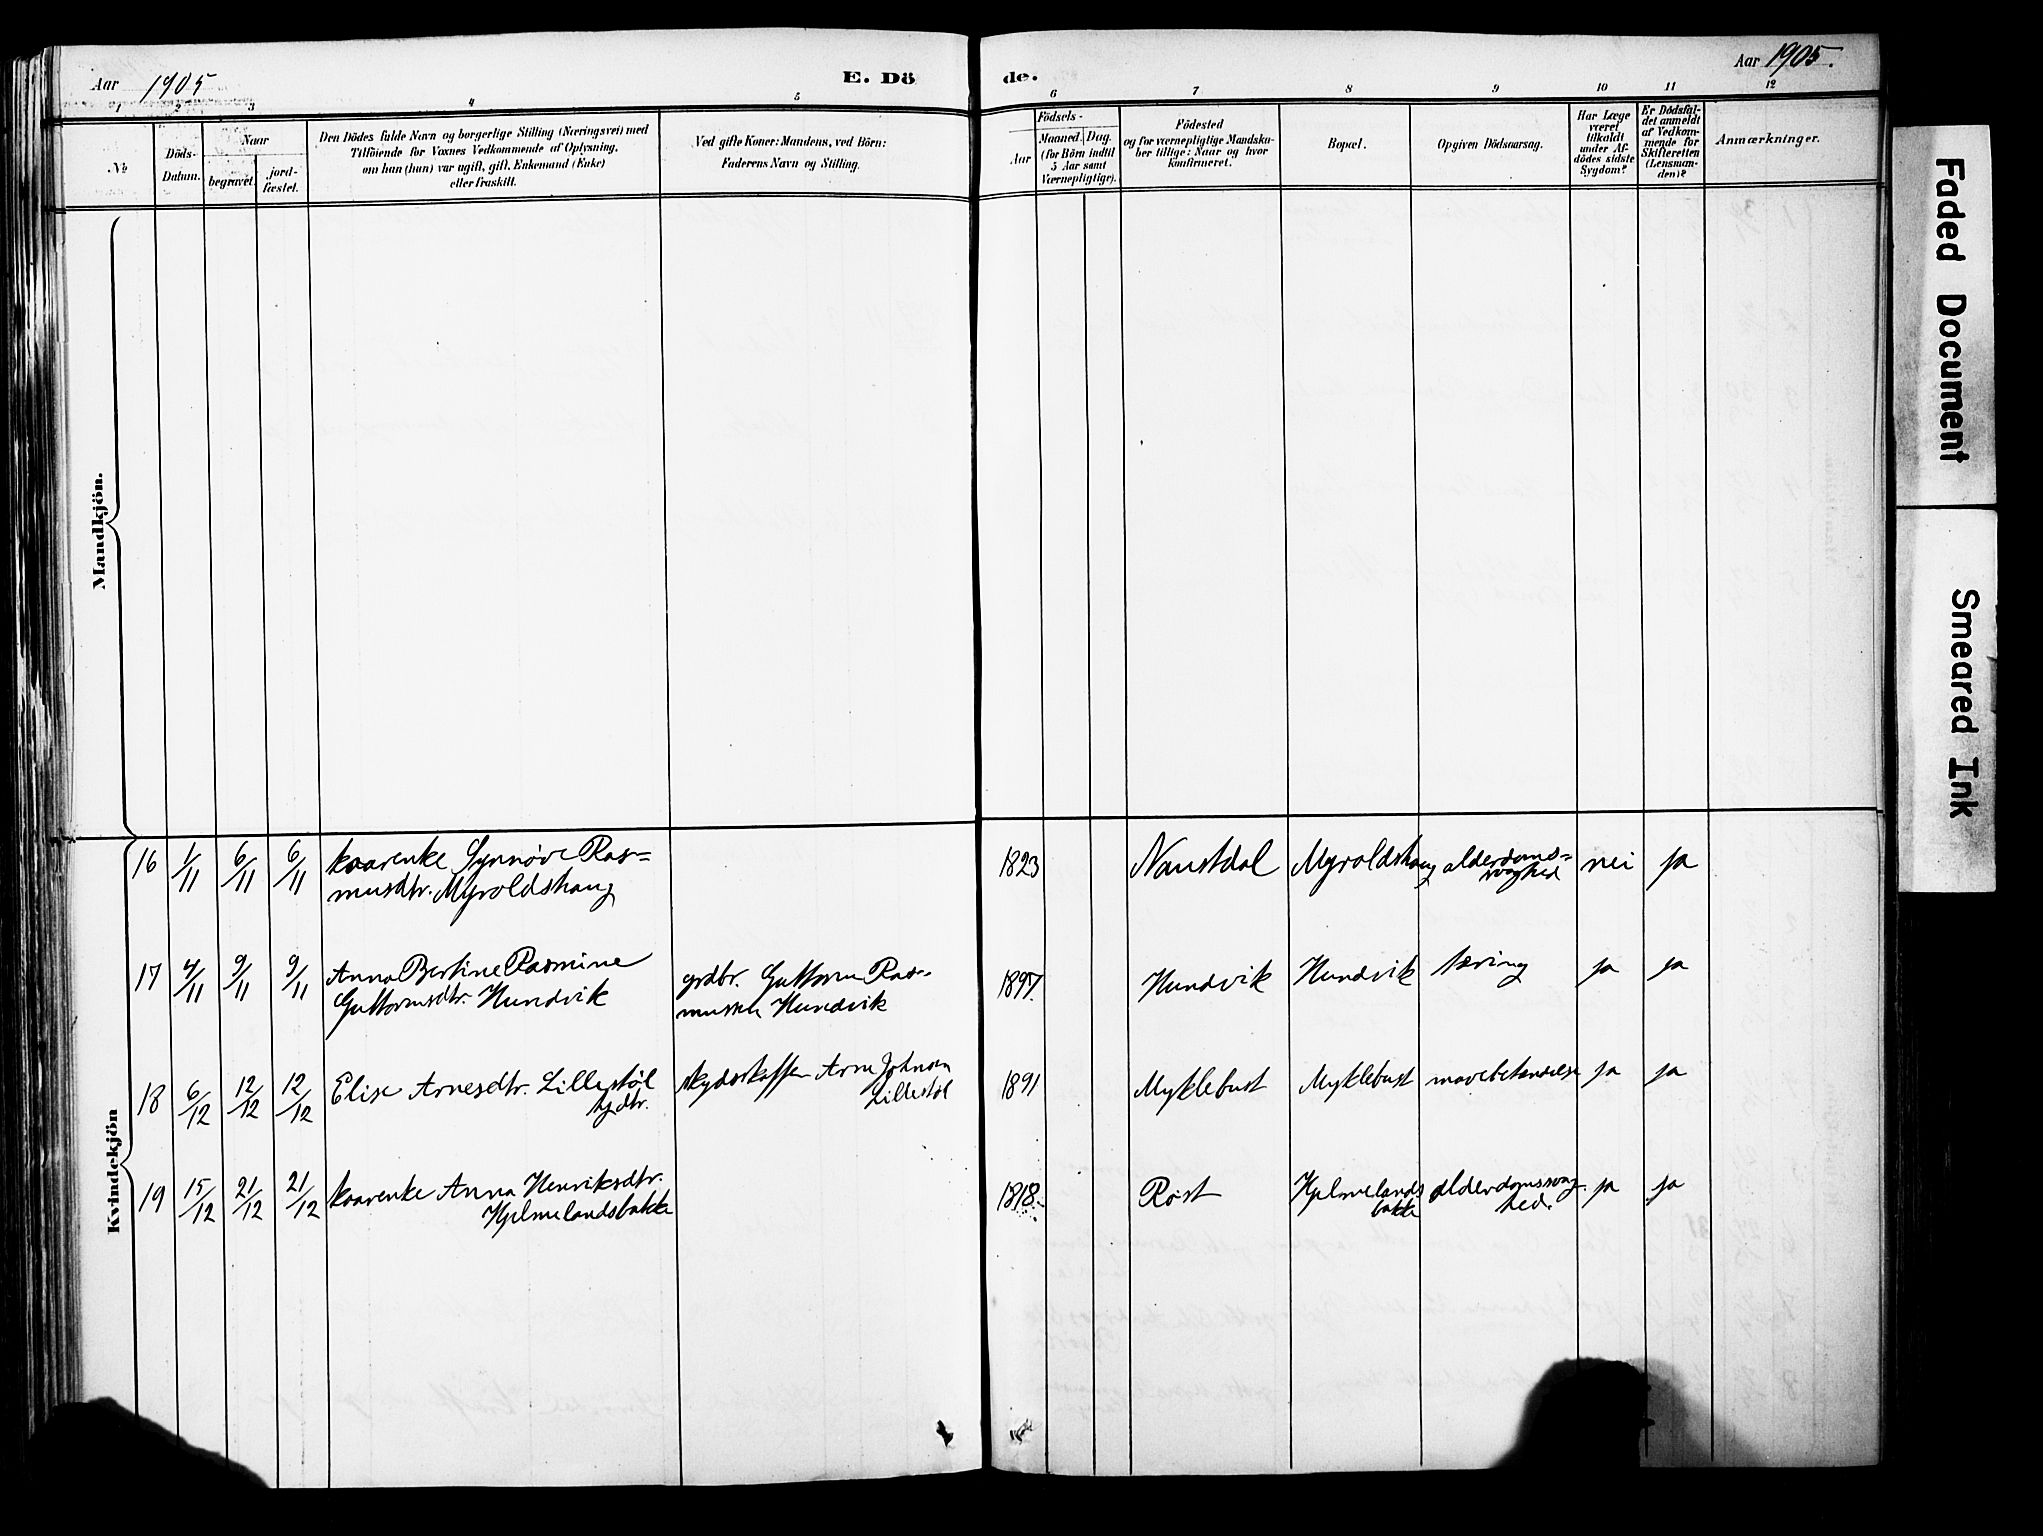 Aar 1905
E. Dö
de.
Aar 1905.
1 2 3 4 5 6 7 8 9 10 11 12
№
Döds-
Datum.
Naar
begravet.
jord-
fæstet.
Den Dödes fulde Navn og borgerlige Stilling (Næringsvei) med
Tilföiende for Voxnes Vedkommende af Oplysning,
om han (hun) var ugift, gift, Enkemand (Enke)
eller fraskilt.
Ved gifte Koner: Mandens, ved Börn:
Faderens Navn og Stilling.
Födsels-
Aar
Maaned. Dag.
(for Börn indtil
5 Aar samt
Værnepligtige).
Födested
og for værnepligtige Mandska-
ber tillige: Naar og hvor
konfirmeret.
Bopæl.
Opgiven Dödsaarsag.
Har Læge
været
tilkaldt
under Af-
dödes sidste
Sygdom?
Er Dödsfal-
det anmeldt
af Vedkom-
mende for
Skifteretten
(Lensman-
den)?
Anmærkninger.
Mandkjön.
Kvindekjön
16 1/11 6/11 6/11 kaarenke Synnøve Ras=
musdtr. Myroldshaug
1823 Naustdal Myroldshaug alderdoms=
svaghed
nei ja
17 4/11 9/11 9/11 Anna Bertine Rasmine
Guttormsdtr. Hundvik
grdbr. Guttorm Ras-
mussen Hundvik
1897. Hundvik Hundvik tæring ja ja
18 6/12 12/12 12/12 Elise Arnesdtr. Lillestøl
skydsskaffer Arne Johnsen
Lillestøl
1891 Myklebust Myklebust mavebetændelse ja ja
19 15/12 21/12 21/12 kaarenke Anna Henriksdtr.
Hjelmelandsbakke
1818. Røst Hjelmelands
bakke
alderdomssvag-
hed.
ja ja
Faded Document
Smeared Ink